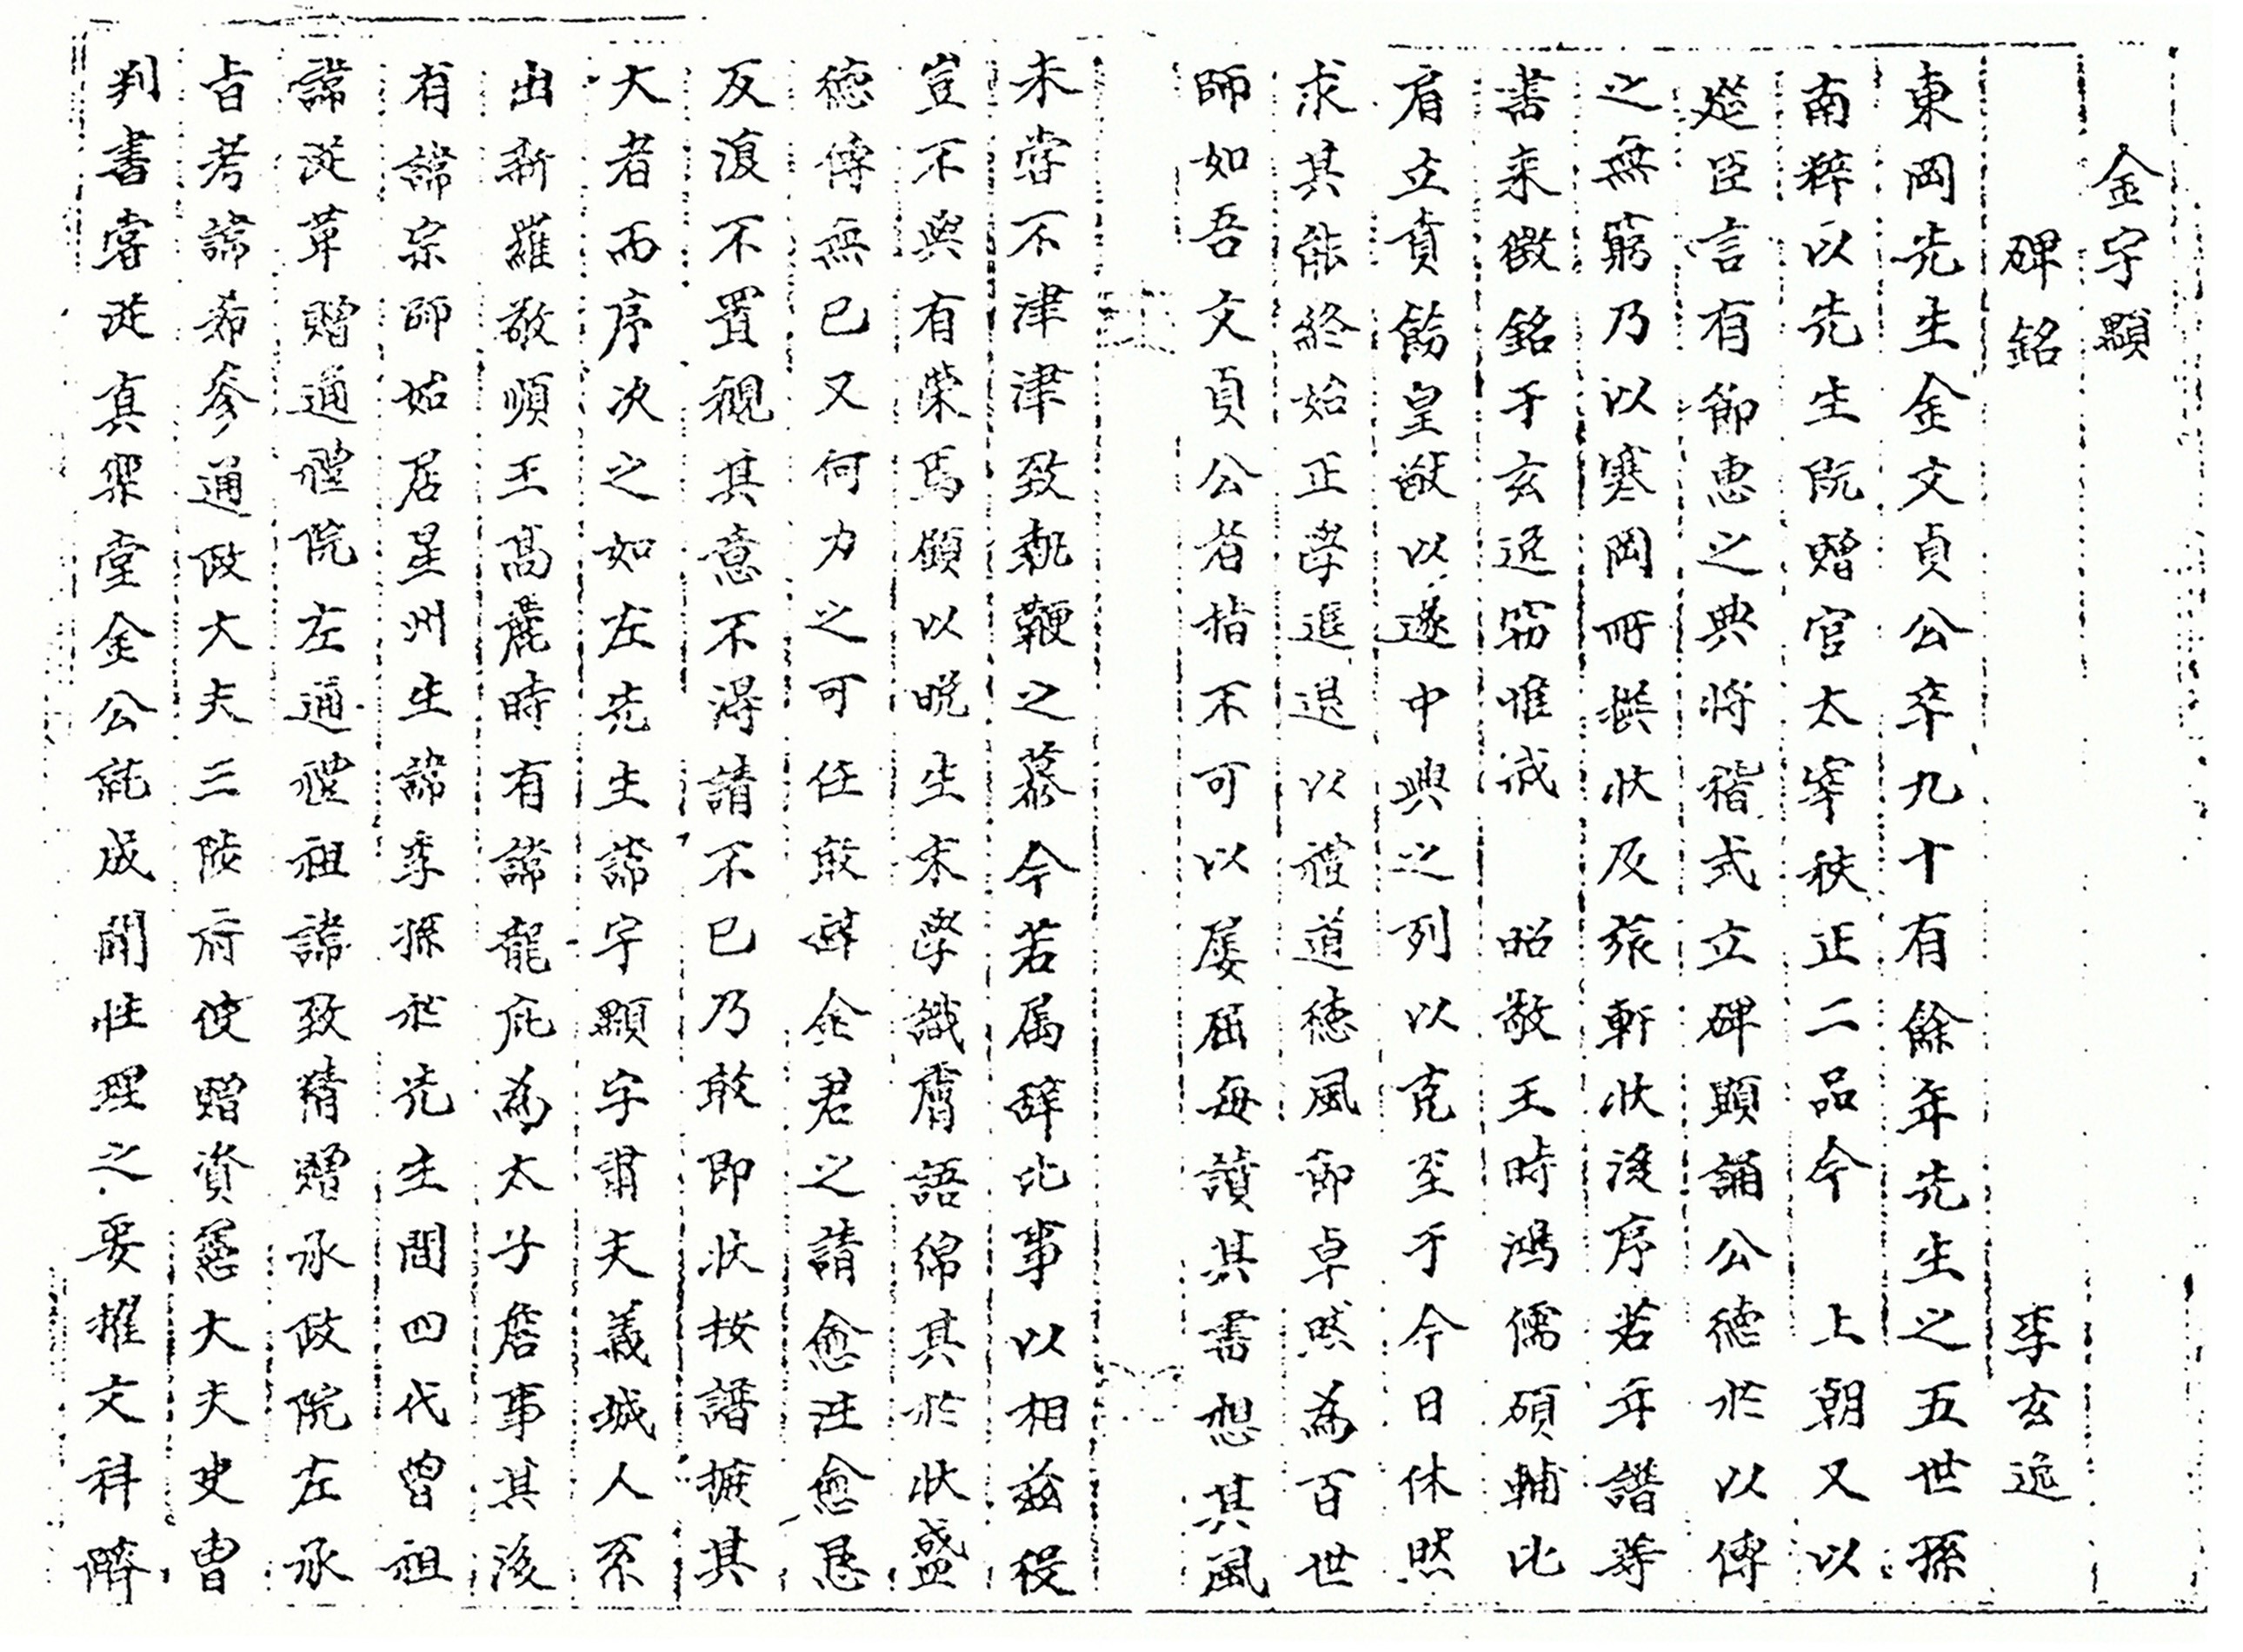 金宇顒
碑銘　李玄逸
東岡先生金文貞公卒九十有餘年先生之五世孫
南粹以先生阮贈官太宰秩正二品今　上朝又以
筵臣言有節惠之典將稽式立碑顯誦公德於以傳
之無窮乃以寒岡所撰狀及旅軒狀後序若年譜等
書来徵銘于玄逸竊惟我　昭敬王時鴻儒碩輔比
肩立賁飾皇猷以遂中興之列以克至于今日休然
求其能終始正學進退以禮道德風節卓然為百世
師如吾文貞公者指不可以屡屈每讀其書想其風
未嘗不津津致執鞭之慕今若属辞比事以相玆役
豈不與有榮焉顧以晩生末學識膚語綿其於狀盛
德傳無已又何力之可任敢辭金君之請愈往愈恳
反復不置覵其意不淂請不已乃敢即狀按譜摭其
大者而序次之如左先生諱宇顒字肅夫義城人系
出新羅敬順王高麗時有諱龍庇為太子詹事其後
有諱宗師始居星州生諱季孫於先生間四代曾祖
諱從革贈通禮院左通禮祖諱致精贈承政院左承
㫖考諱希參通政大夫三陟府使贈資憲大夫吏曹
判書嘗從真樂堂金公就成聞性理之要擢文科儕